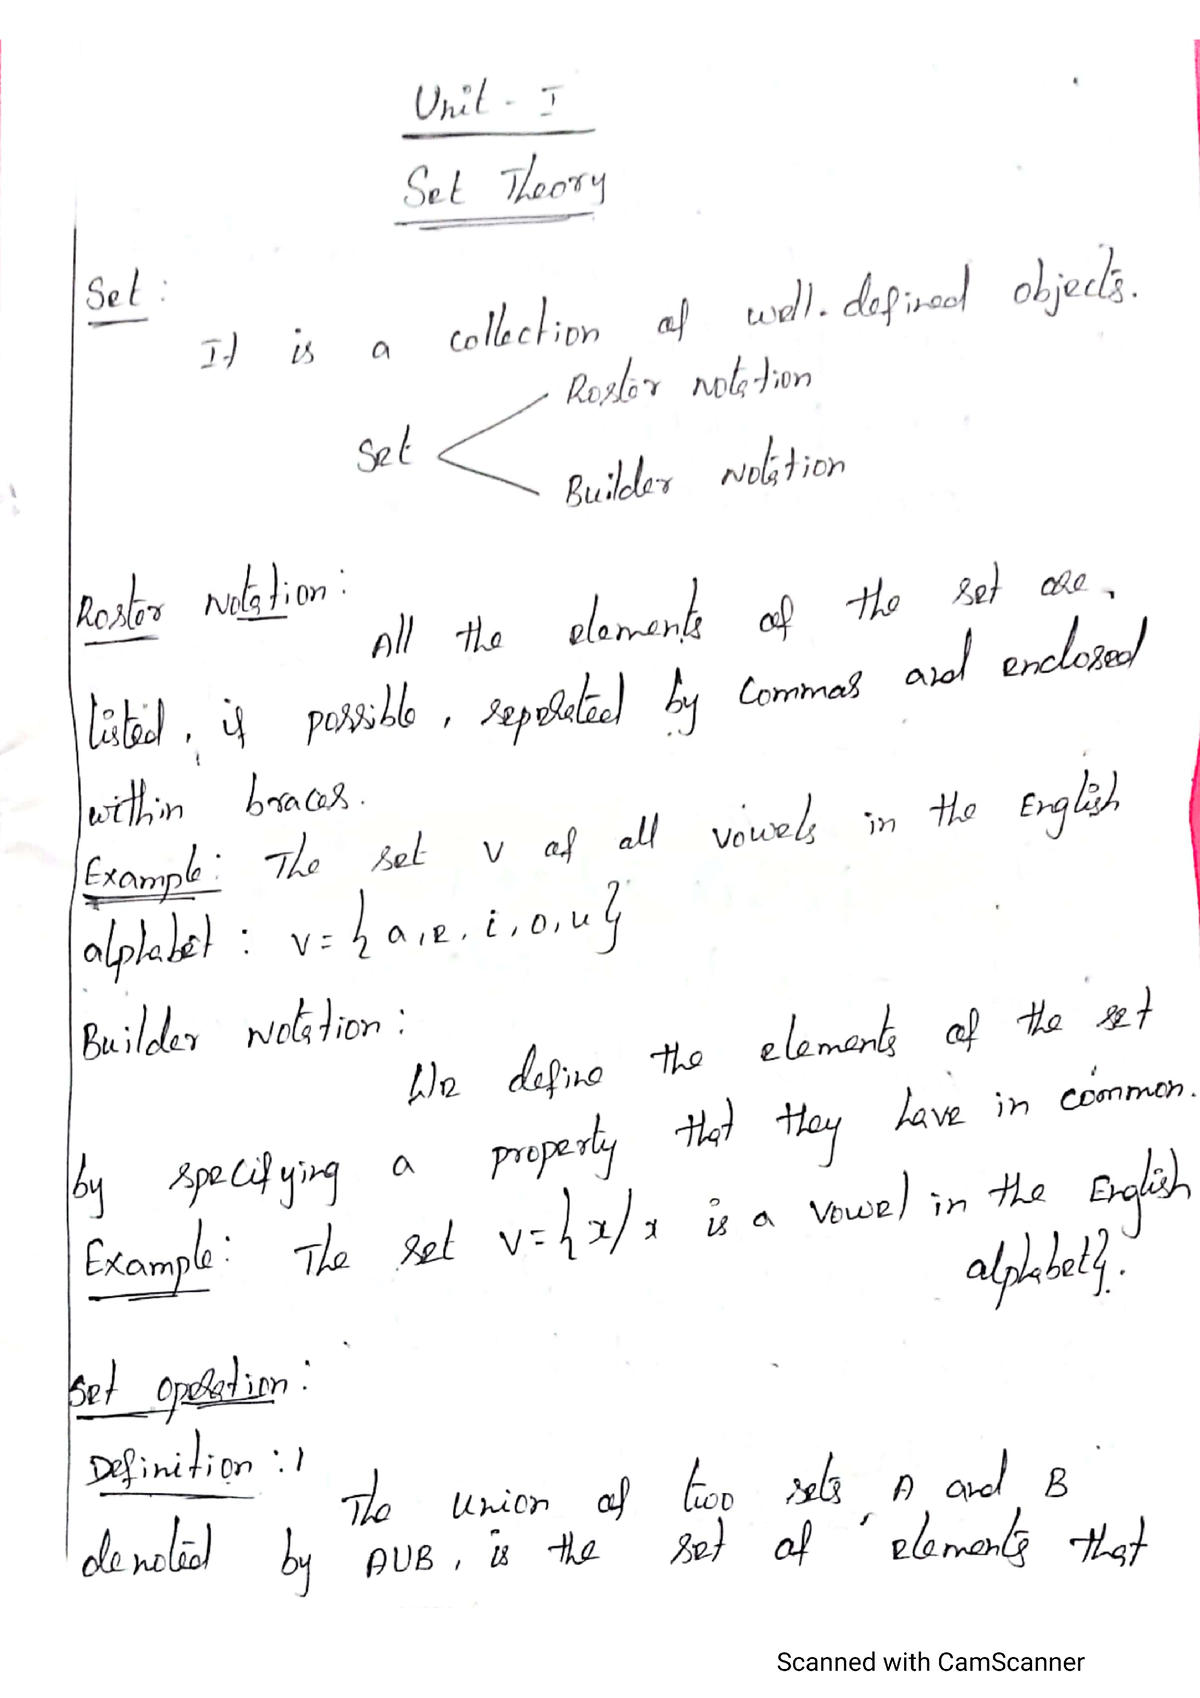 Unit - I
Set Theory
Set :
It is a collection of well-defined objects.
Rostor notation
Set
Builder Notation
Rostor Notation :
All the elements of the set are
listed, if possible, seperated by commas and enclosed
within braces.
Example : The set V of all vowels in the English
alphabet : V = { a, e, i, o, u }
Builder Notation :
We define the elements of the set
by specifying a property that they have in common.
Example : The set V = { x / x is a vowel in the English
alphabet}.
Set operation :
Definition : 1
The union of two sets A and B
denoted by AUB, is the set of elements that
Scanned with CamScanner